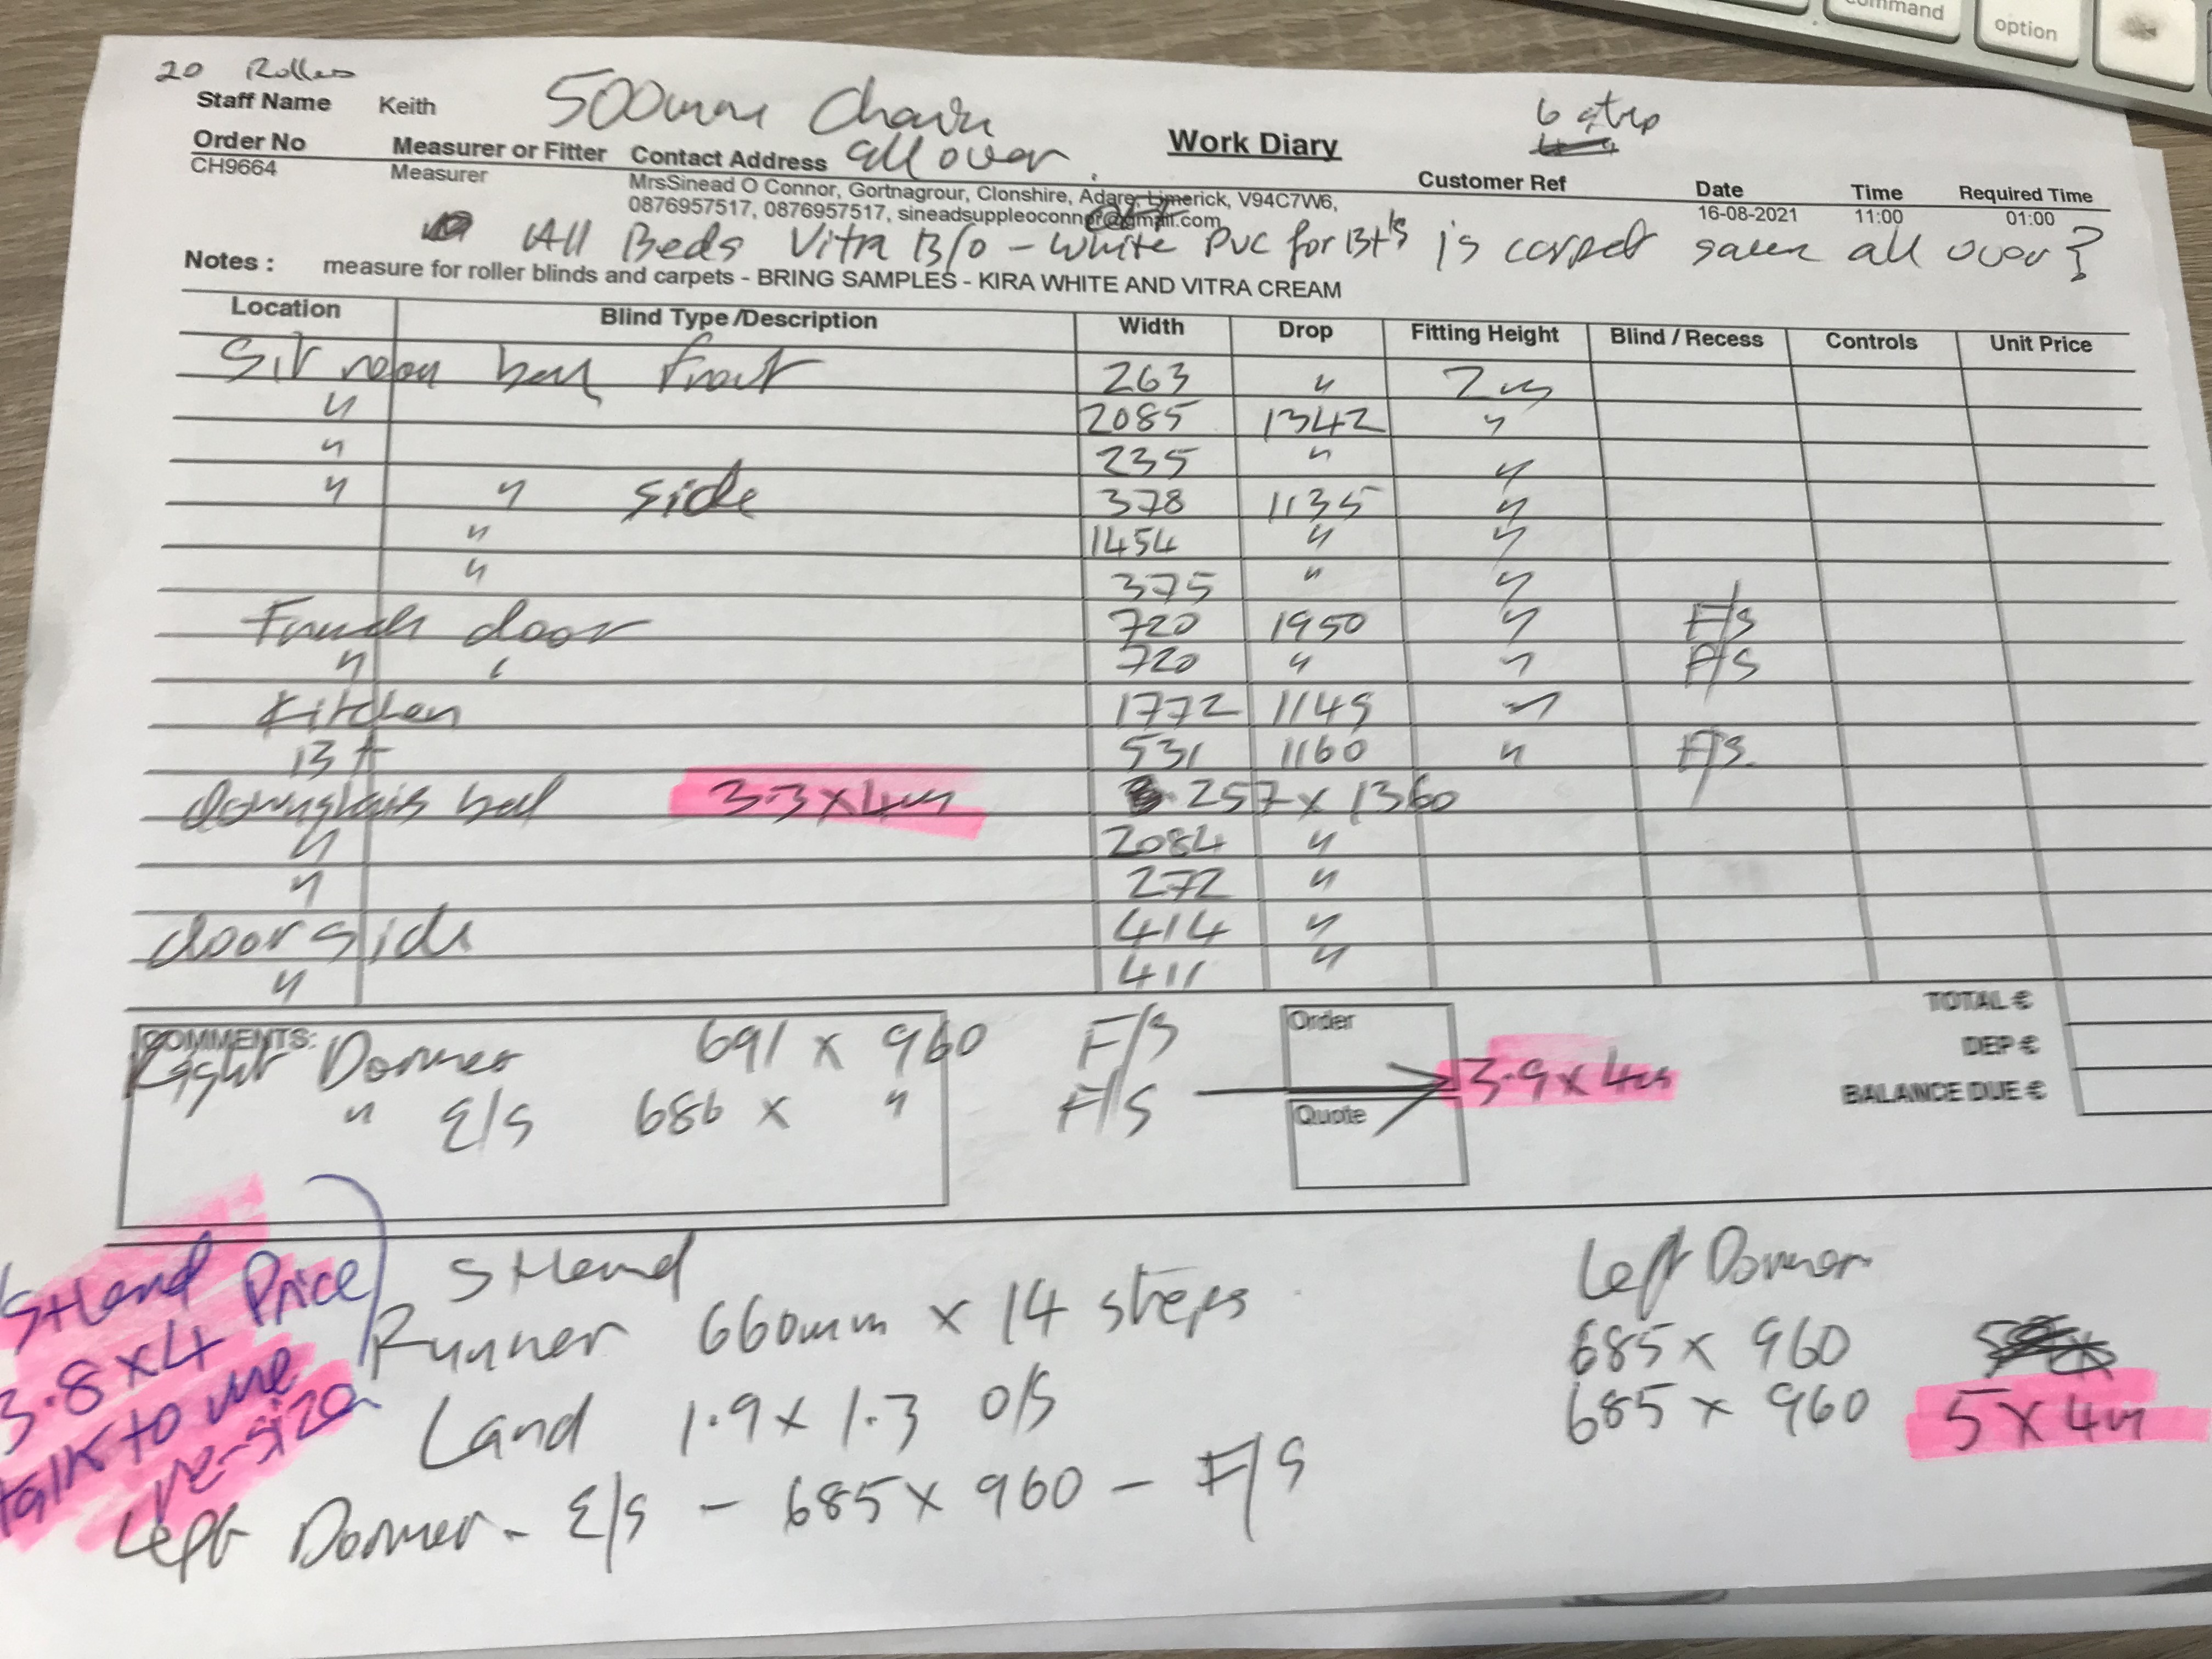 command
option
20 Rollers
Staff Name Keith 500mm Chain 6 step
Order No Measurer or Fitter Contact Address all over. Work Diary Customer Ref Date Time Required Time
CH9664 Measurer MrsSinead O Connor, Gortnagrour, Clonshire, Adare, Limerick, V94C7W6, 16-08-2021 11:00 01:00
0876957517, 0876957517, sineadsuppleoconnor@gmail.com
All Beds Vitra B/O - White PVC for Bt's is carpet same all over?
Notes : measure for roller blinds and carpets - BRING SAMPLES - KIRA WHITE AND VITRA CREAM
Location Blind Type /Description Width Drop Fitting Height Blind / Recess Controls Unit Price
Sit room bay front 263 " 2m
" 2085 1342 "
" 235 " "
" " side 378 1135 "
" 1454 " "
" 375 " "
French door 720 1950 " F/S
" " 720 " " F/S
Kitchen 1772 1149 "
Bt 531 1160 " F/S
downstairs bed 3.3 x 4m 257 x 1360
" 2084 "
" 272 "
door side 414 "
" 411 "
COMMENTS:
Right Dormer 691 x 960 F/S
" E/S 686 x " F/S
Order
Quote
3.9 x 4m
TOTAL €
DEP €
BALANCE DUE €
S+Land Price
3.8 x 4
talk to me
re-size
S+Land
Runner 660mm x 14 steps
Land 1.9 x 1.3 O/S
Left Dormer - E/S - 685 x 960 - F/S
Left Dormer
685 x 960
685 x 960 5 x 4m